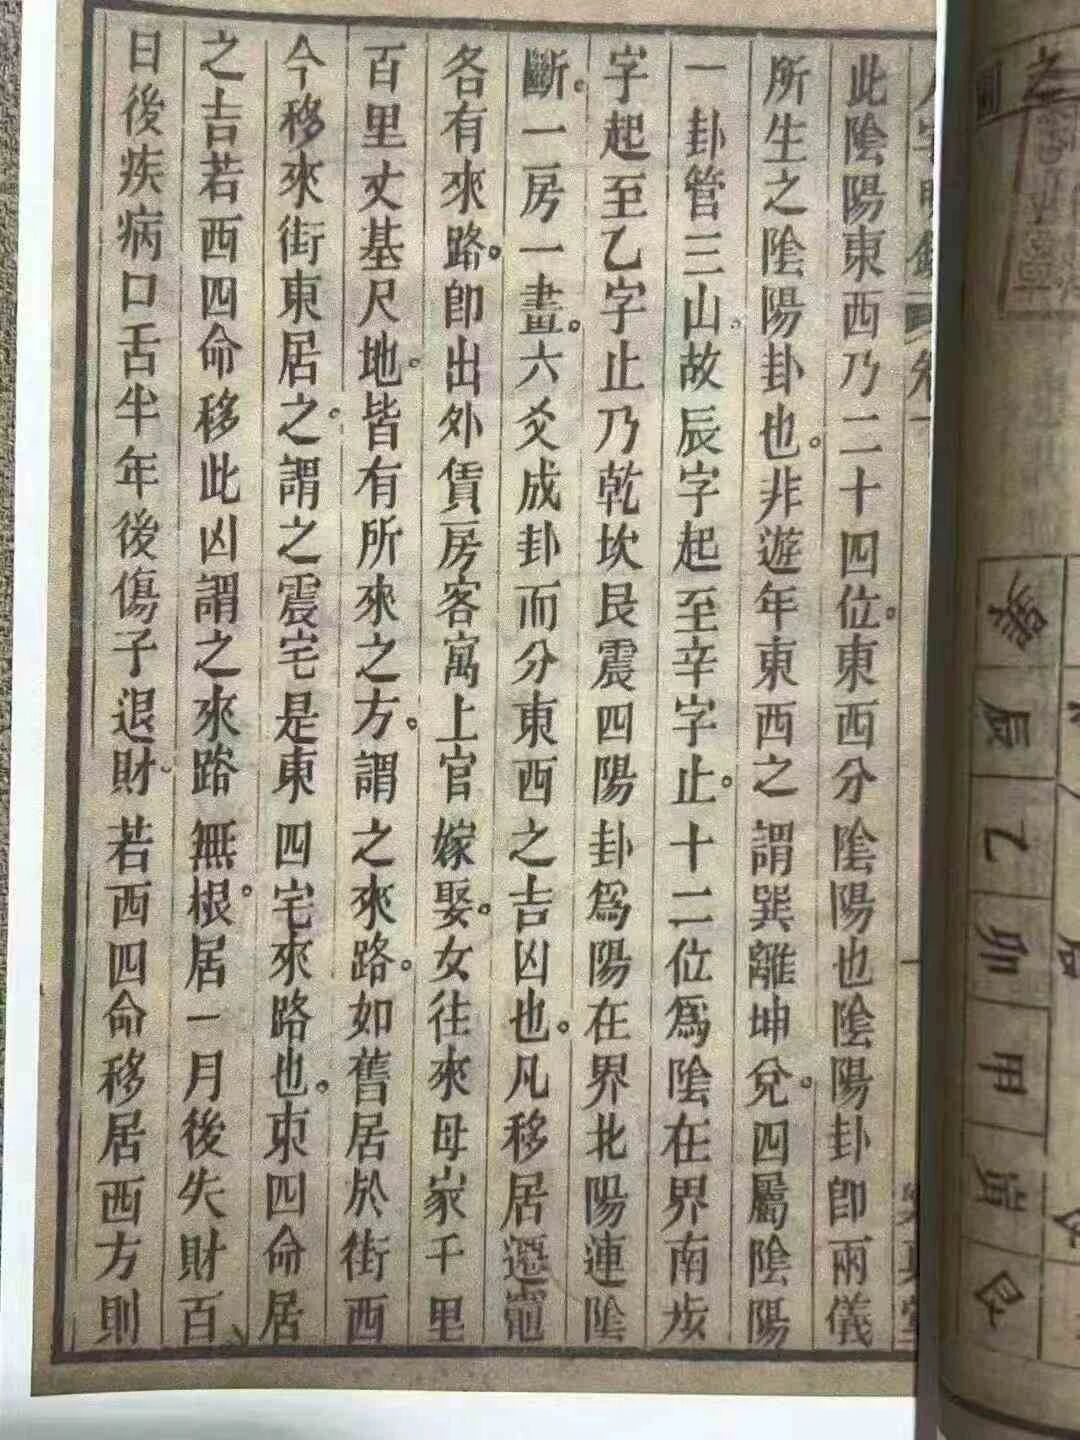 此陰陽東西乃二十四位。東西分陰陽也陰陽卦卽兩儀
所生之陰陽卦也。非遊年東西之謂巽離坤兌。四屬陰陽
一卦管三山。故辰字起至辛字止。十二位爲陰在界南𡵯
字起至乙字止乃乾坎艮震四陽卦爲陽在界北陽連陰
斷。一房一畫。六爻成卦而分東西之吉凶也。凡移居遷
各有來路。卽出外賃房客寓上官嫁娶。女往來母家千里
百里丈基尺地。皆有所來之方。謂之來路。如舊居於街西
今移來街東居之。謂之震宅是東四宅來路也。東四命居
之吉若西四命移此凶謂之來路無根。居一月後失財百
日後疾病口舌半年後傷子退財。若西四命移居西方則
巽
辰
乙
卯
甲
寅
艮
之
圖